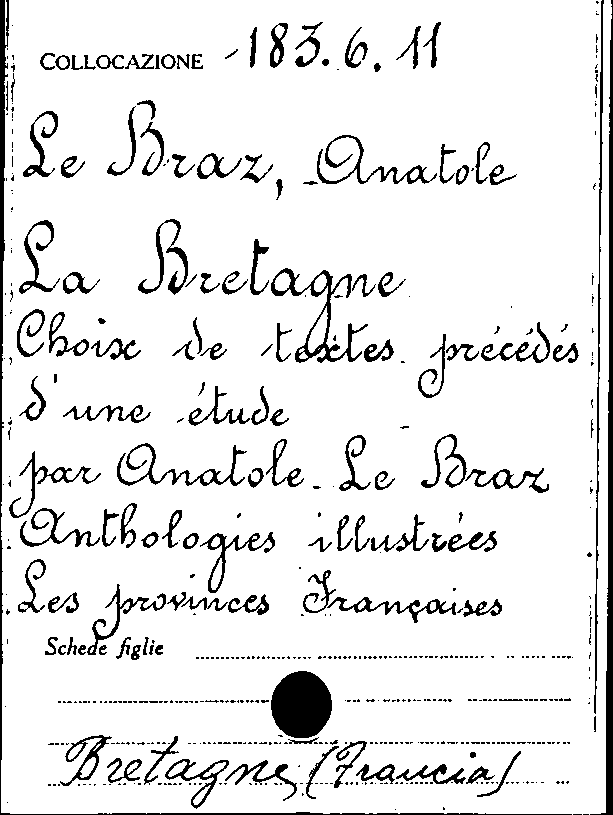 COLLOCAZIONE 183.6.11
Le Braz, Anatole
La Bretagne
Choix de textes précédés
d'une étude
par Anatole Le Braz
Anthologies illustrées
Les provinces Françaises
Schede figlie
Bretagne (Francia)